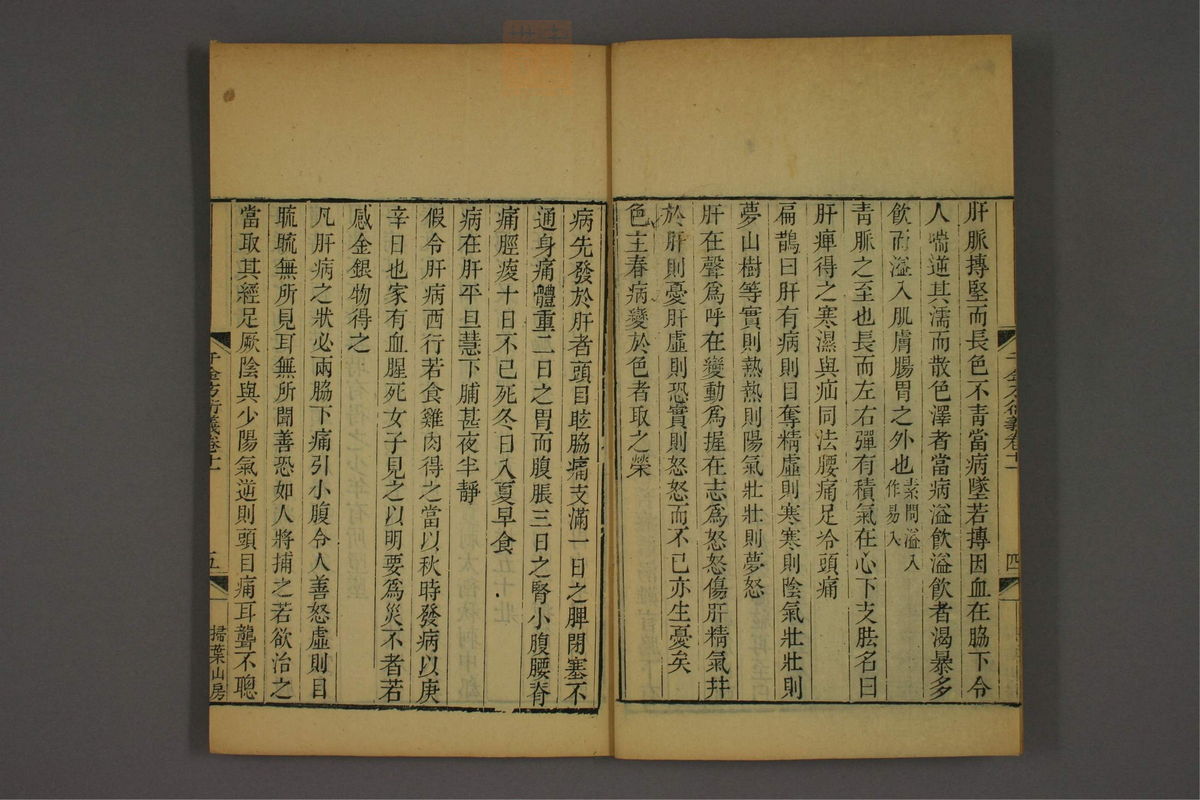 肝脈搏堅而長色不青當病墜若搏因血在脇下令
人喘逆其濡而散色澤者當病溢飲溢飲者渴暴多
飲而溢入肌膚腸胃之外也素問溢入作易入
青脈之至也長而左右彈有積氣在心下支胠名曰
肝痺得之寒濕與疝同法腰痛足冷頭痛
扁鵲曰肝有病則目奪精虛則寒寒則陰氣壯壯則
夢山樹等實則熱熱則陽氣壯壯則夢怒
肝在聲爲呼在變動爲握在志爲怒怒傷肝精氣幷
於肝則憂肝虛則恐實則怒怒而不已亦生憂矣
色主春病變於色者取之榮
四
病先發於肝者頭目眩脇痛支滿一日之脾閉塞不
通身痛體重二日之胃而腹脹三日之腎小腹腰脊
痛脛痠十日不已死冬日入夏早食
病在肝平旦慧下脯甚夜半靜
假令肝病西行若食雞肉得之當以秋時發病以庚
辛日也家有血腥死女子見之以明要爲災不者若
感金銀物得之
凡肝病之狀必兩脇下痛引小腹令人善怒虛則目
䀮䀮無所見耳無所聞善恐如人將捕之若欲治之
當取其經足厥陰與少陽氣逆則頭目痛耳聾不聰
千金方衍義卷十一
五
掃葉山房